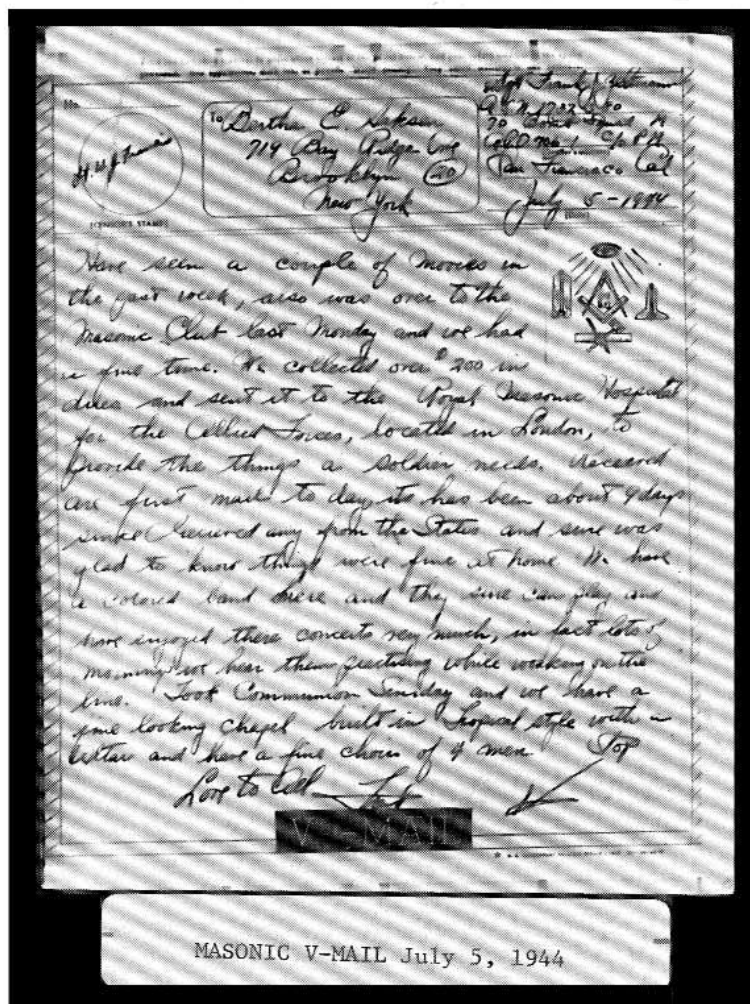 No.
To Bertha E.
714 Bay Ridge Ave
Brooklyn (20)
New York
Frank J.
San Francisco Cal
July 5 - 1944
(CENSOR'S STAMP)
Have seen a couple of movies in
the past week, also was over to the
Masonic Club last Monday and we had
a fine time. We collected over $200 in
dues and sent it to the Royal Masonic Hospital
for the Allied Forces, located in London, to
provide the things a soldier needs. Received
are first mail to day, its has been about 9 days
since I received any from the States and sure was
glad to know things were fine at home We have
a colored band here and they sure can play and
have enjoyed there concerts very much, in fact lots of
mornings we hear them practising while working on the
line. Took Communion Sunday and we have a
fine looking chapel built in Tropical style with a
alter and have a fine choir of 4 men
Love to All
V-MAIL
MASONIC V-MAIL July 5, 1944